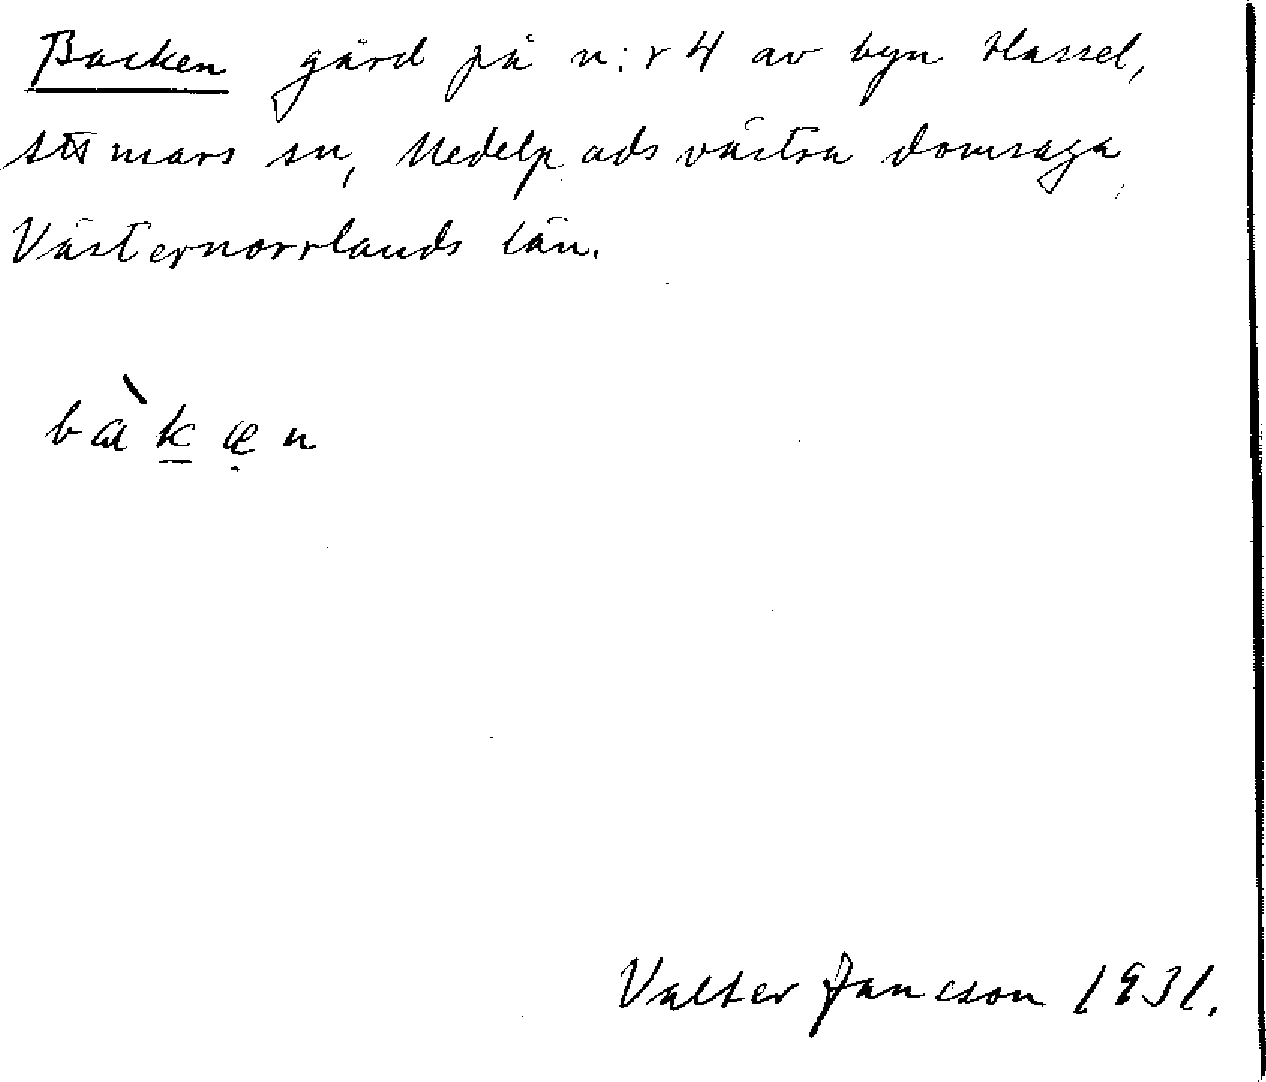 Backen gård på n:r 4 av byn Hassel,
Attmars sn, Medelpads västra domsaga,
Västernorrlands län.
bàk̲æ̣n
Valter Jansson 1931.